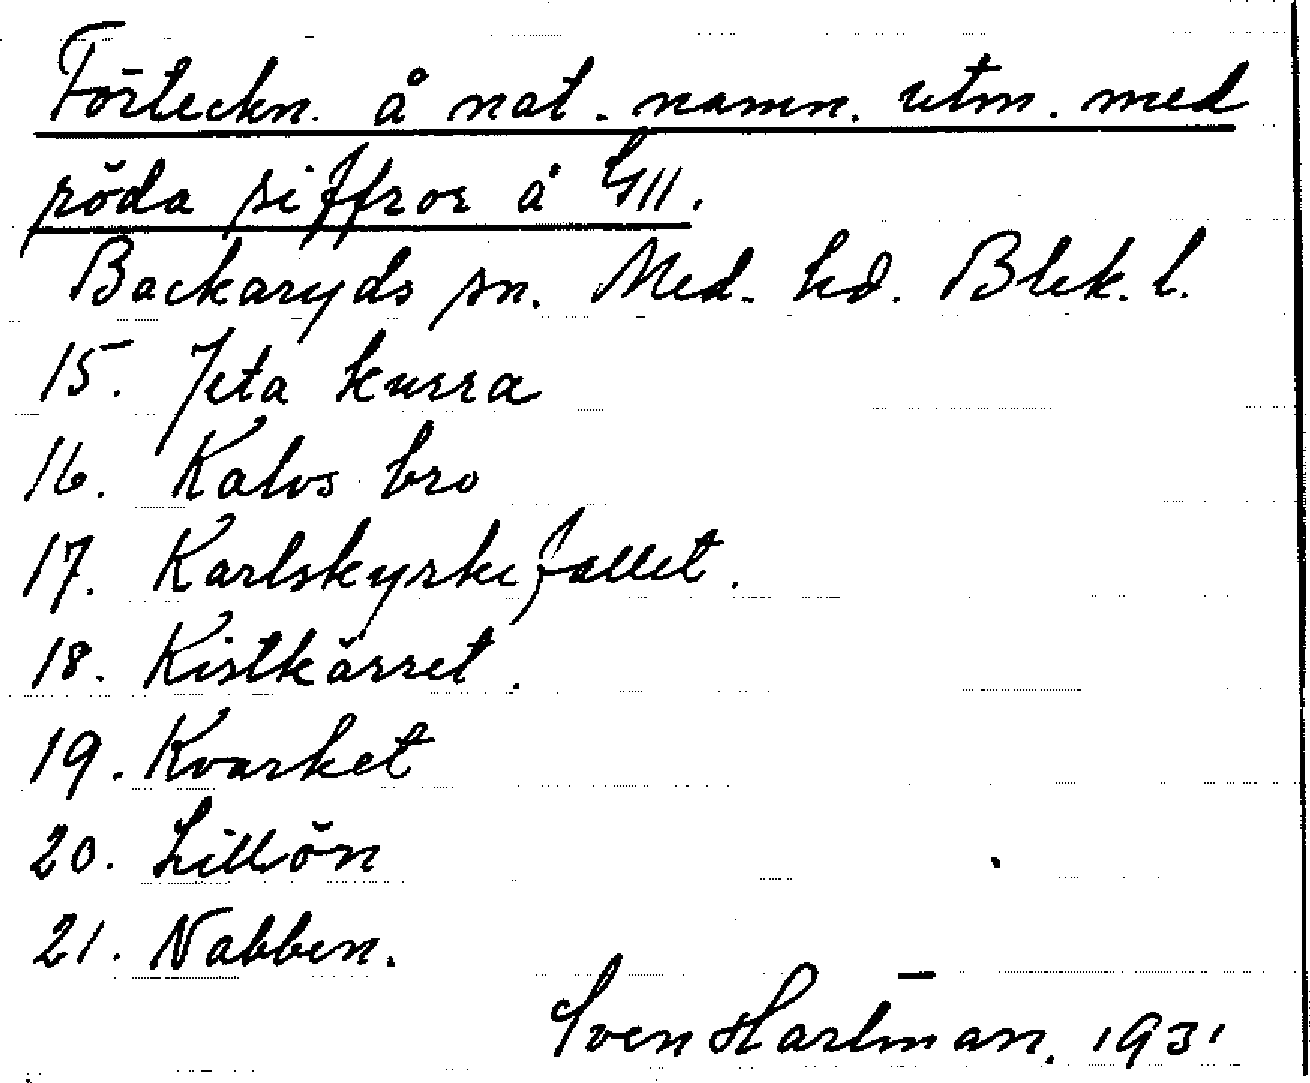 Förteckn. å nat. namn. utm. med
röda siffror å
Backaryds sn. Med. hd. Blek. l.
15. Jeta kurra
16. Kalvs bro
17. Karlskyrkefallet.
18. Kistkärret.
19. Kvarket
20. Lillön
21. Nabben.
Sven Hartman. 1931